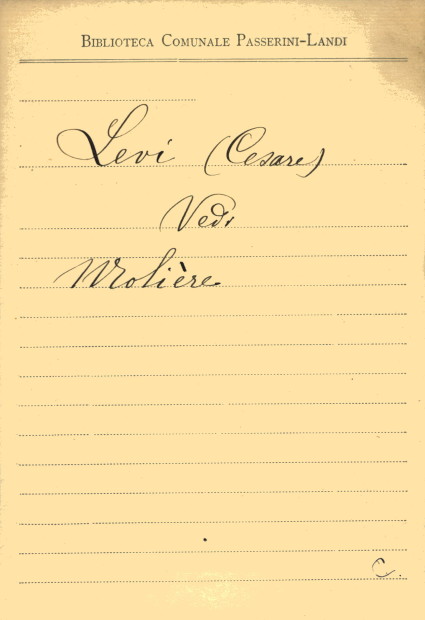 BIBLIOTECA COMUNALE PASSERINI-LANDI
Levi (Cesare)
Vedi
Molière
C.